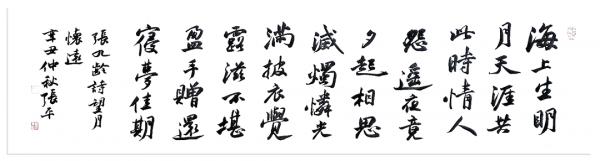 海上生明
月天涯共
此時情人
怨遙夜竟
夕起相思
滅燭憐光
滿披衣覺
露滋不堪
盈手贈還
寢夢佳期
張九齡詩望月
懷遠
辛丑仲秋張平